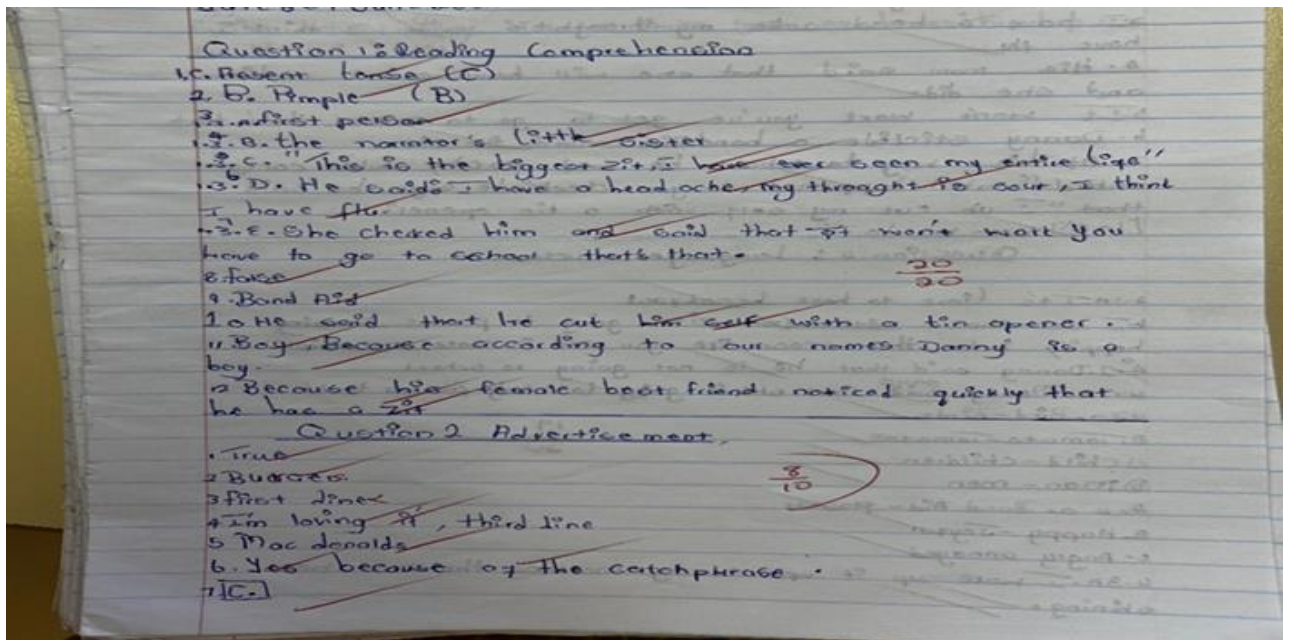 Question 1: Reading Comprehension
1. C. Present tense (C)
2. B. Pimple (B)
3. A first person
4. B. the narrator's little sister
5. C. "This is the biggest zit, I have ever seen my entire life"
6. D. He said: I have a head ache, my throught is sour, I think
I have flu
7. E. She checked him and said that it won't work you
have to go to school that's that.
8. false
9. Band Aid
10 He said that he cut him self with a tin opener.
11 Boy. Because according to our names Danny is a
boy.
12 Because his female best friend noticed quickly that
he has a zit
20
20
Question 2 Advertisement.
. True
2 Burgers.
3 first line
4 I'm loving it, third line
5 Mac donalds
6. Yes because of the catchphrase.
7 C.
8
10